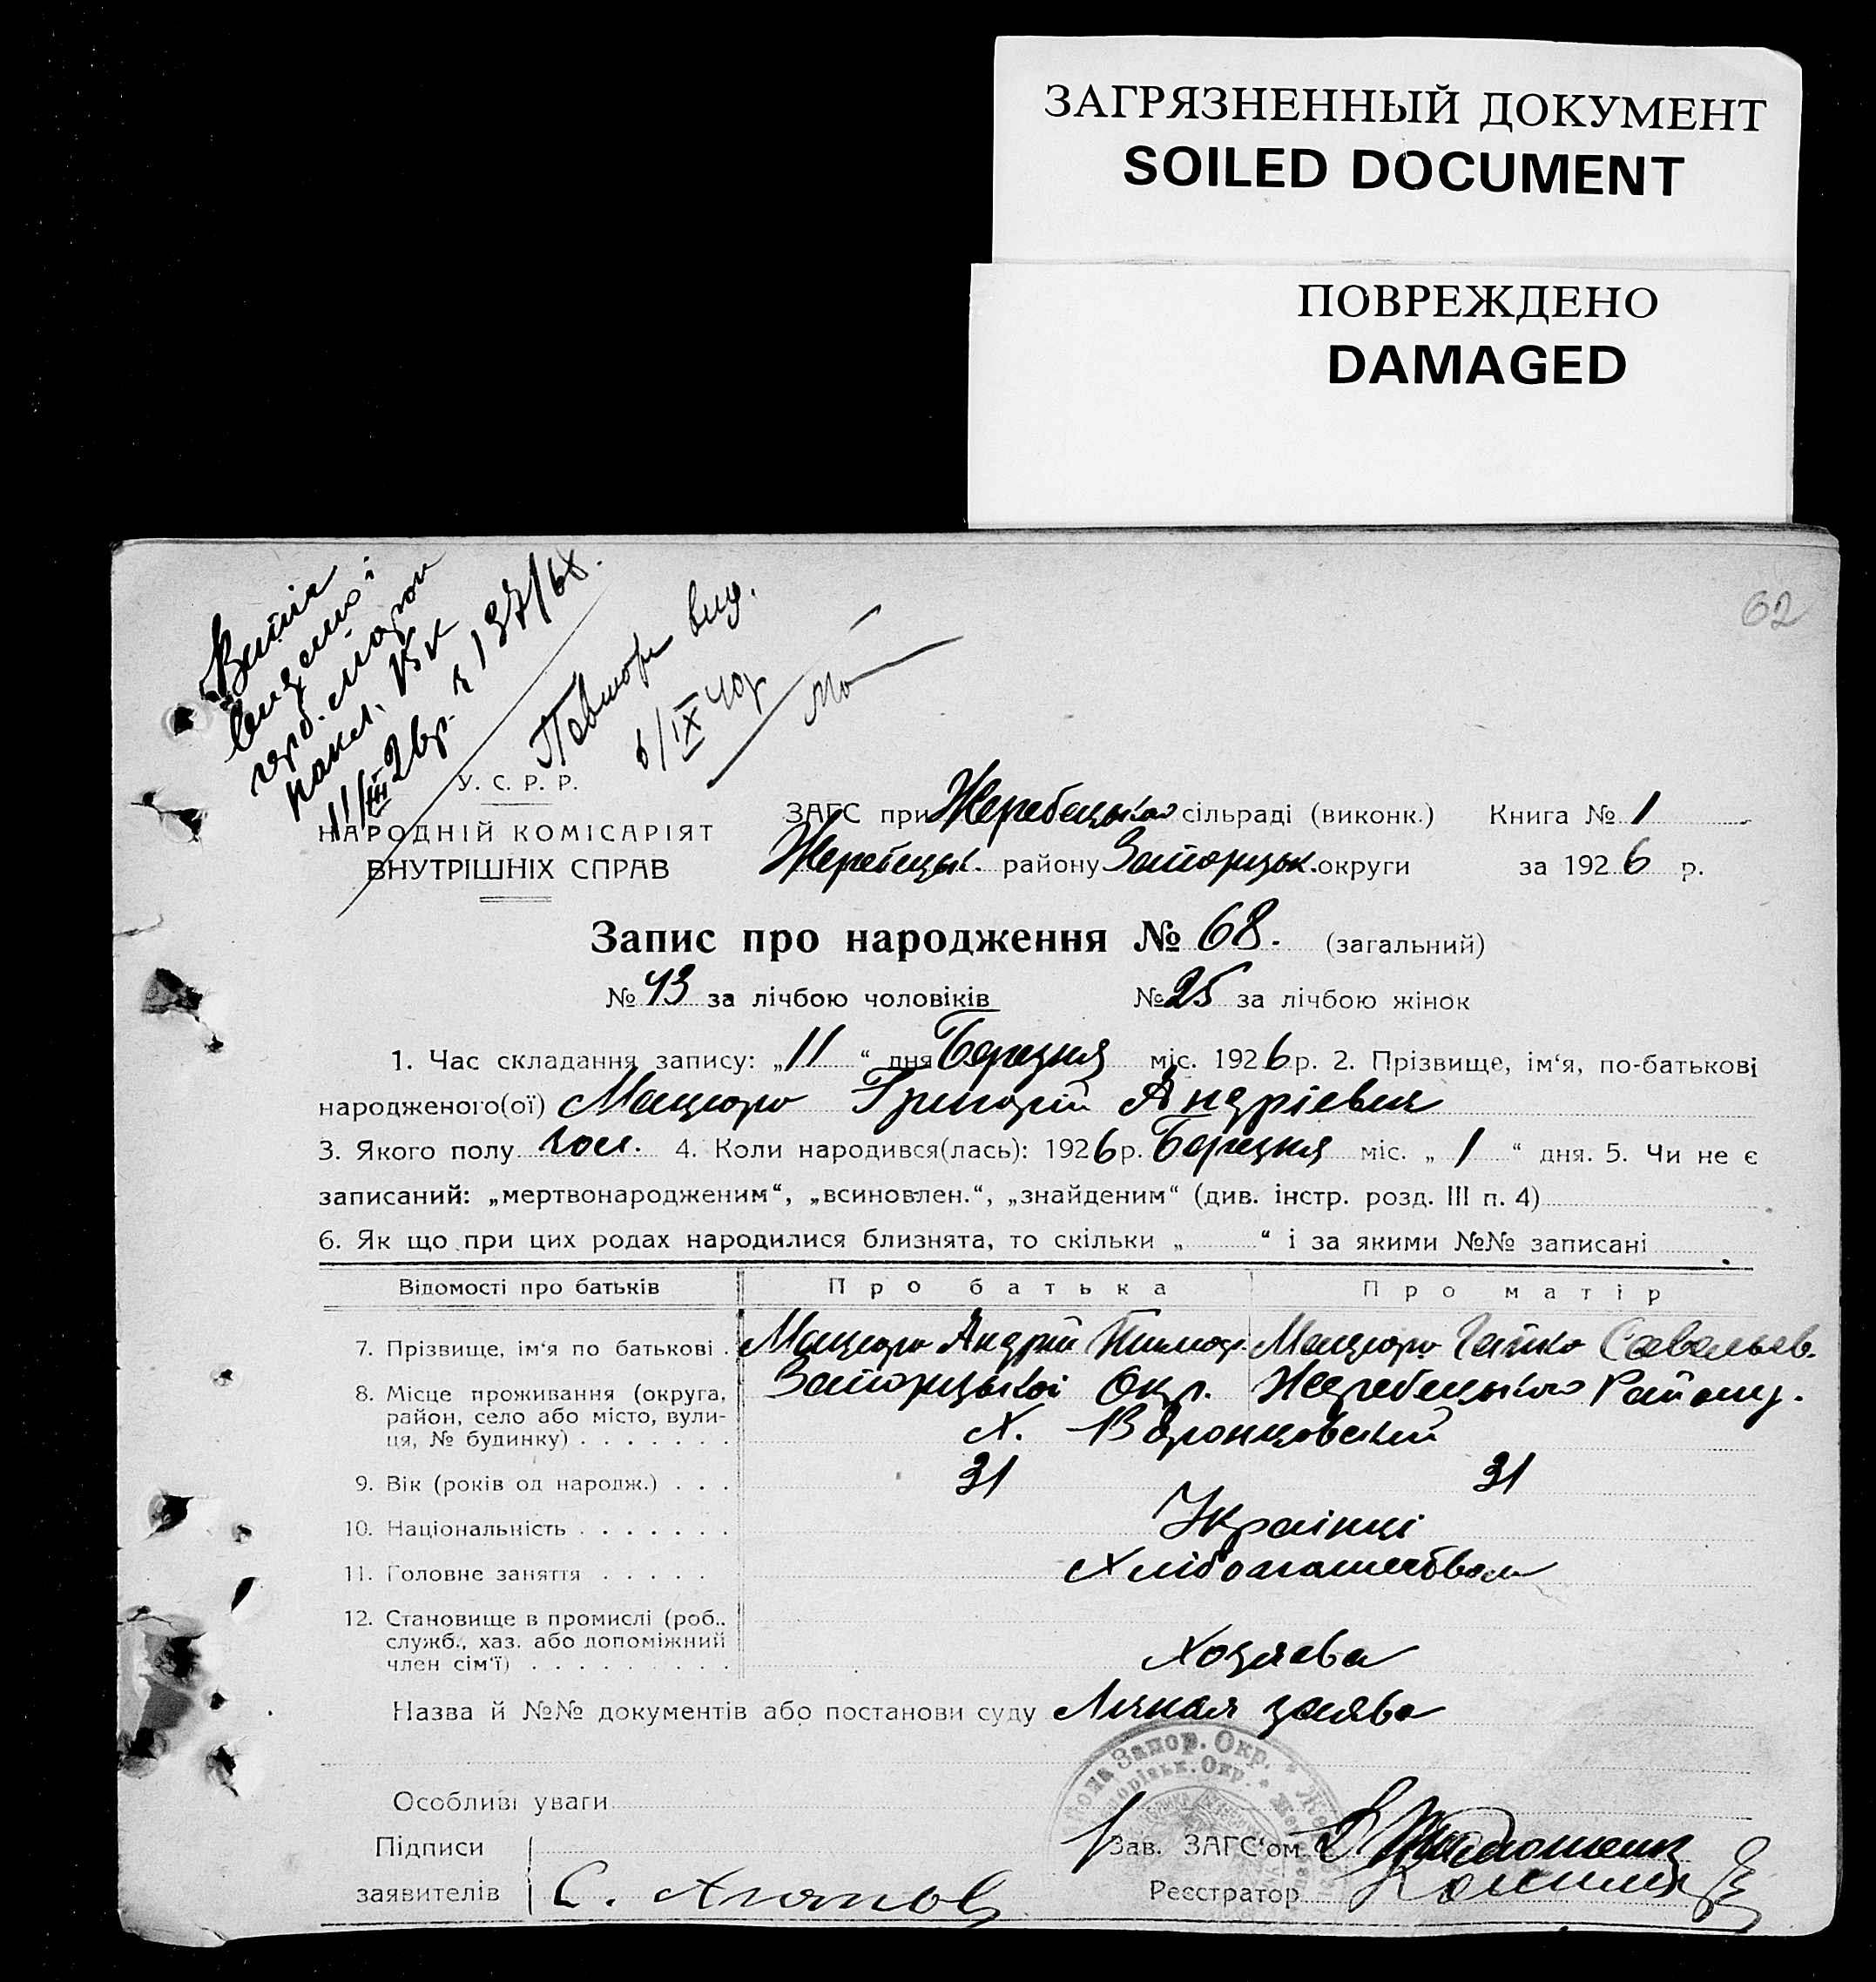 ЗАГРЯЗНЕННЫЙ ДОКУМЕНТ
SOILED DOCUMENT
ПОВРЕЖДЕНО
DAMAGED
62
Повторн вид.
6/IX 40р
У. С. Р. Р.
НАРОДНІЙ КОМІСАРІЯТ
ВНУТРІШНІХ СПРАВ
ЗАГС при Жеребецькій сільраді (виконк.) Книга № 1
Жеребецьк. району Запоризьк. округи за 1926 р.
Запис про народження № 68. (загальний)
№ 43 за лічбою чоловіків № 25 за лічбою жінок
1. Час складання запису: „11“ дня Березня міс. 1926 р. 2. Прізвище, ім‘я, по-батькові
народженого(ої) Мацюро Григорій Андрієвич
3. Якого полу чол. 4. Коли народився(лась): 1926 р. Березня міс. „1“ дня. 5. Чи не є
записаний: „мертвонародженим“, „всиновлен.“, „знайденим“ (див. інстр. розд. III п. 4)
6. Як що при цих родах народилися близнята, то скільки „ “ і за якими №№ записані
Відомості про батьків Про батька Про матір
7. Прізвище, ім‘я по батькові . Мацюро Андрій Тимоф. Мацюро Савельев.
8. Місце проживання (округа, Запорізької Окр. Жеребецького Району.
район, село або місто, вули-
ця, № будинку) . . . . . . . х. Воронцовский
9. Вік (років од народж.) . . . 31 31
10. Національність . . . . . . . Українці
11. Головне заняття . . . . . Хлібопашество
12. Становище в промислі (роб.,
служб., хаз. або допоміжний
член сім‘ї) . . . . . . . . . Хозяева
Назва й №№ документів або постанови суду Личная заява
Особливі уваги
Підписи
Зав. ЗАГС‘ом
заявителів
Реєстратор